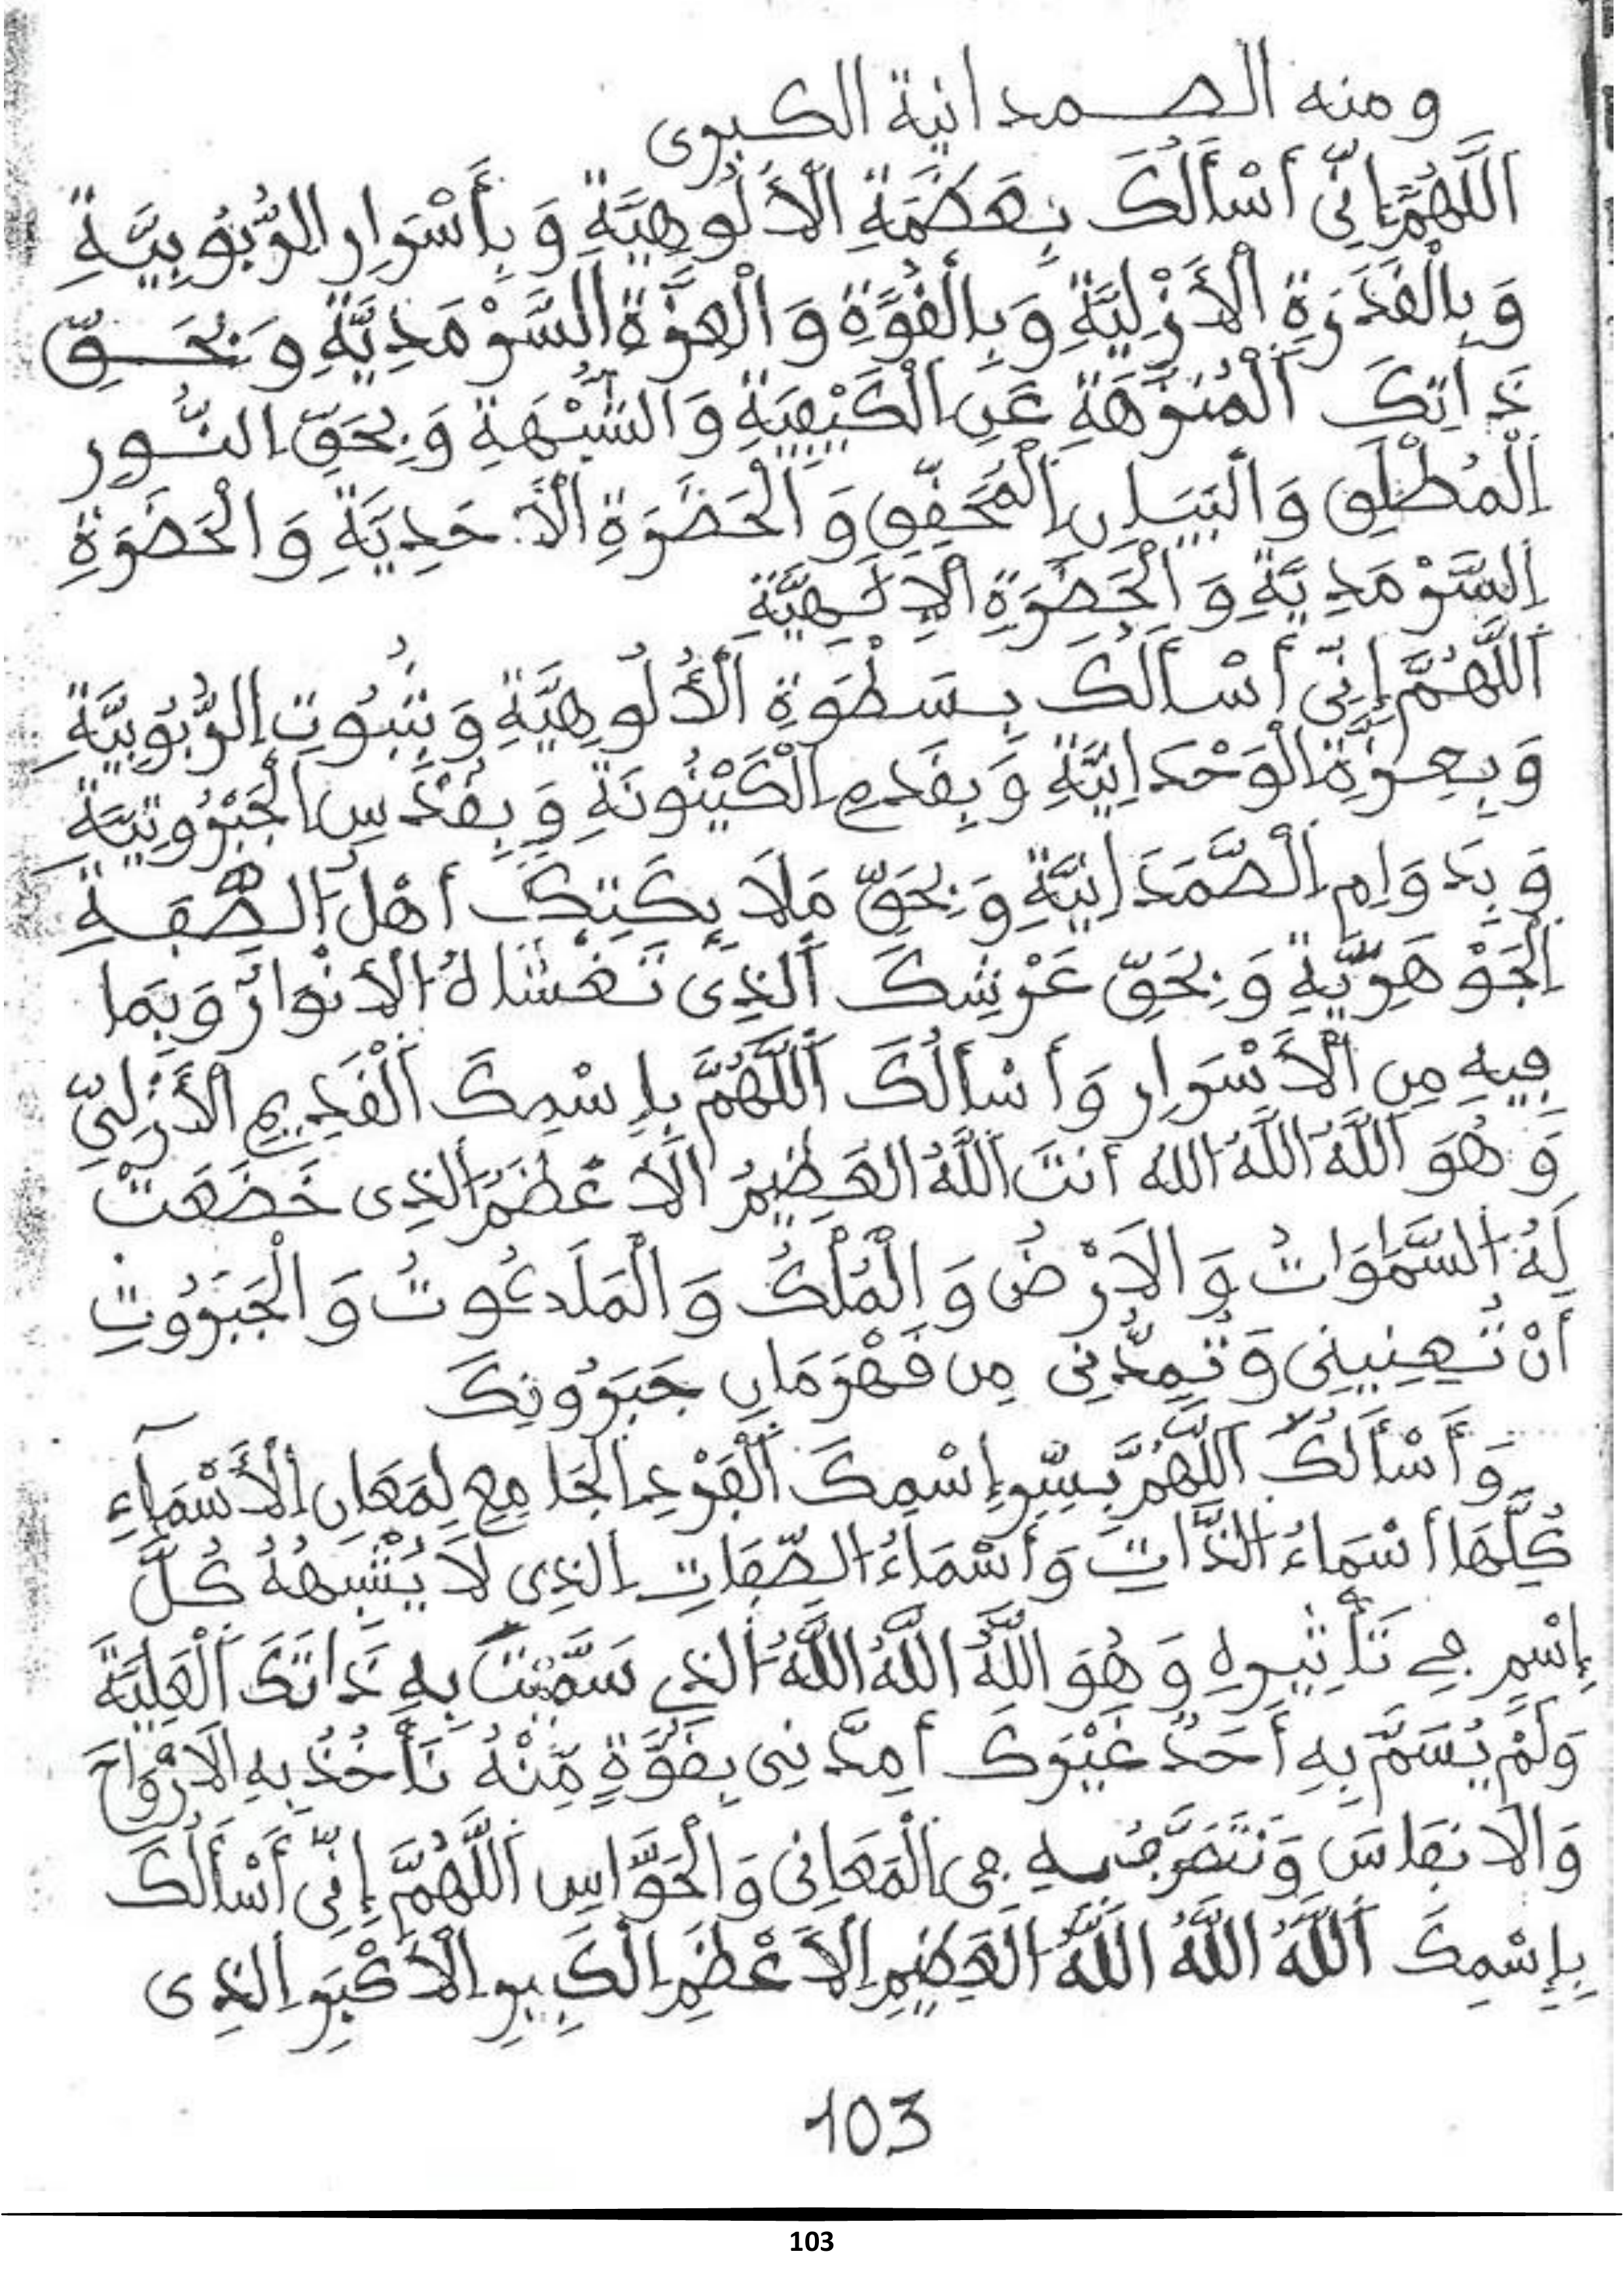 ومنه الصمدانية الكبرى
اَللَّهُمَّ إِنِّى أَسْأَلُكَ بِعَظَمَةِ الْأُلُوهِيَّةِ وَبِأَسْرَارِ الرُّبُوبِيَّةِ
وَبِالْقُدْرَةِ الْأَزَلِيَّةِ وَبِالْقُوَّةِ وَالْعِزَّةِ السَّرْمَدِيَّةِ وَبِحَقِّ
ذَاتِكَ الْمُنَزَّهَةِ عَنِ الْكَيْفِيَةِ وَالشُّبْهَةِ وَبِحَقِّ النُّورِ
الْمُطْلَقِ وَالْبَيَانِ الْمُحَقَّقِ وَالْحَضْرَةِ الْأَحَدِيَّةِ وَالْحَضْرَةِ
السَّرْمَدِيَّةِ وَالْحَضْرَةِ الْإِلَهِيَّةِ
اَللَّهُمَّ إِنِّى أَسْأَلُكَ بِسَطْوَةِ الْأُلُوهِيَّةِ وَبِثُبُوتِ الرُّبُوبِيَّةِ
وَبِعِزَّةِ الْوَحْدَانِيَّةِ وَبِقِدَمِ الْكَيْنُونَةِ وَبِقُدْسِ الْجَبَرُوتِيَّةِ
وَبِدَوَامِ الصَّمَدَانِيَّةِ وَبِحَقِّ مَلَائِكَتِكَ أَهْلِ الصُّفَّةِ
الْجَوْهَرِيَّةِ وَبِحَقِّ عَرْشِكَ الَّذِى تَغْشَاهُ الْأَنْوَارُ وَبِمَا
فِيهِ مِنَ الْأَسْرَارِ وَأَسْأَلُكَ اللَّهُمَّ بِإِسْمِكَ الْقَدِيمِ الْأَزَلِىِّ
وَهُوَ اللَّهُ اللَّهُ اللَّهُ أَنْتَ اللَّهُ الْعَظِيمُ الْأَعْظَمُ الَّذِى خَضَعَتْ
لَهُ السَّمَوَاتُ وَالْأَرْضُ وَالْمُلْكُ وَالْمَلَكُوتُ وَالْجَبَرُوتِ
أَنْ تُعِينَنِى وَتُمِدَّنِى مِنْ قَهْرَمَانِ جَبَرُوتِكَ
وَأَسْأَلُكَ اللَّهُمَّ بِسِرِّ إِسْمِكَ الْفَرْدِ الْجَامِعِ لِمَعَانِ الْأَسْمَآءِ
كُلِّهَا أَسْمَاءُ الذَّاتِ وَأَسْمَاءُ الصِّفَاتِ الَّذِى لَا يُشْبِهُهُ كُلُّ
إِسْمٍ فِى تَأْثِيرِهِ وَهُوَ اللَّهُ اللَّهُ اللَّهُ الَّذِى سَمَّيْتَ بِهِ ذَاتَكَ الْعَلِيَّةَ
وَلَمْ يُسَمَّ بِهِ أَحَدٌ غَيْرَكَ أَمِدَّنِى بِقُوَّةٍ مِّنْهُ تَأْخُذُ بِهِ الْأَرْوَاحَ
وَالْأَنْفَاسَ وَنَتَصَرَّفُ بِهِ فِى الْمَعَانِى وَالْحَوَّاسِ اللَّهُمَّ إِنِّى أَسْأَلُكَ
بِإِسْمِكَ اللَّهُ اللَّهُ اللَّهُ الْعَظِيمِ الْأَعْظَمِ الْكَبِيرِ الْأَكْبَرِ الَّذِى
103
103